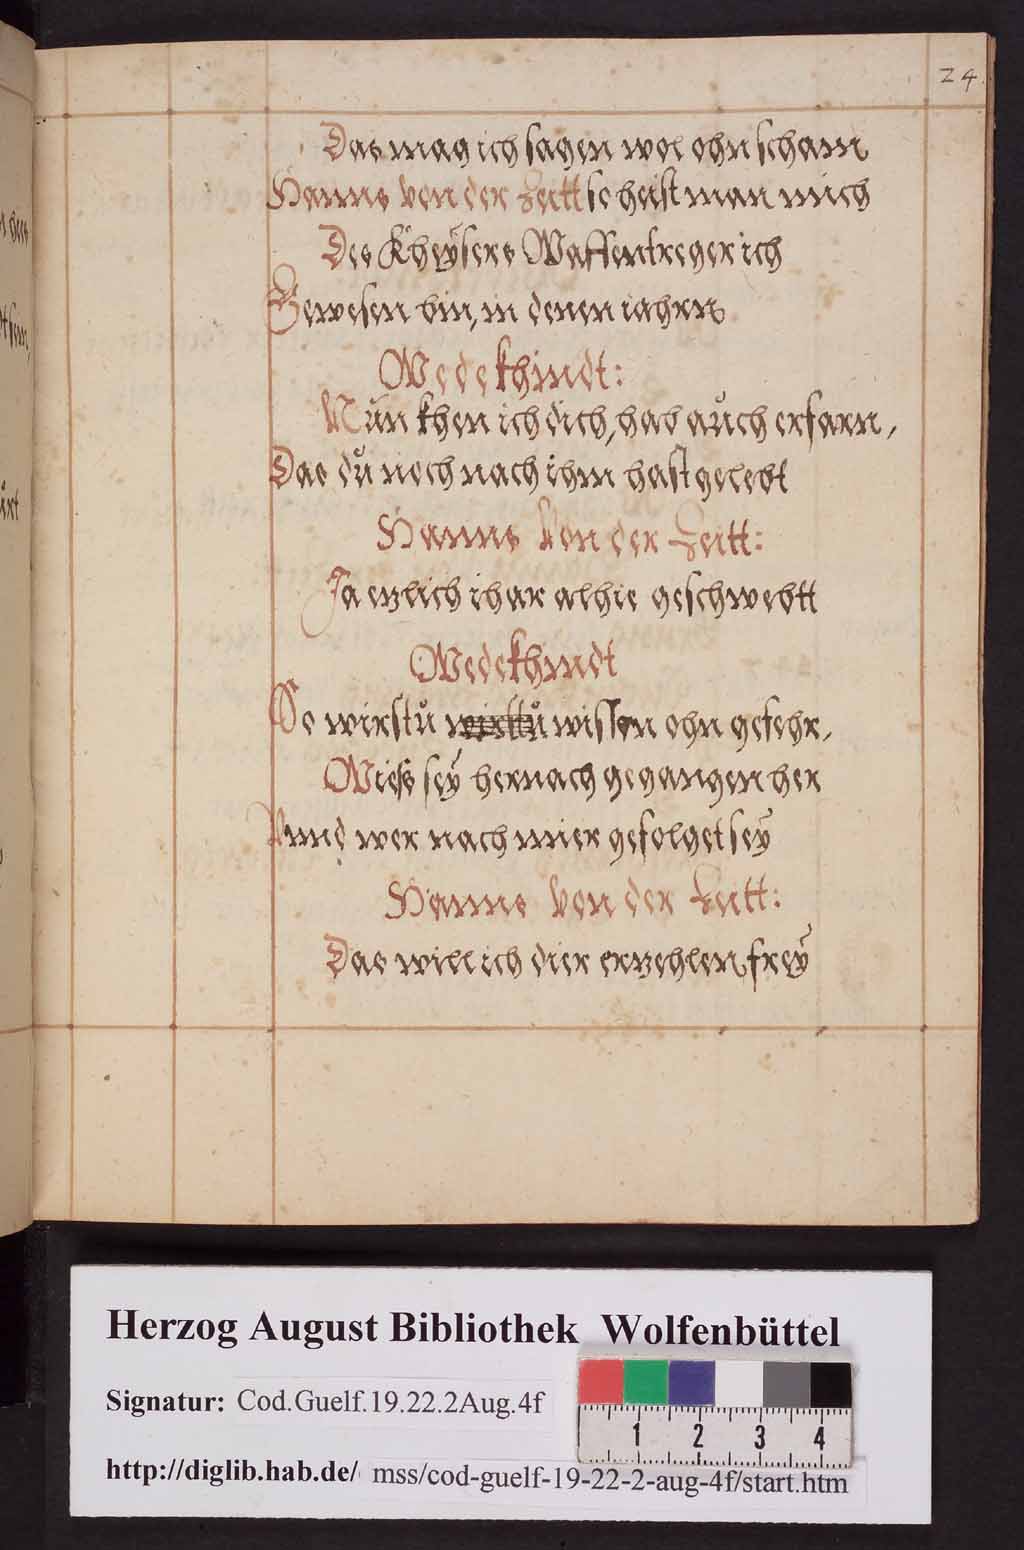 24
Das mag ich sagen wol ohn scham
Hanns von der Zeitt so heist man mich
Des Kheÿsers Waffentreger ich
Gewesen bin, in denen iahrn
Wedekhindt:
Nůn khen ich dich, hab aůch erfarn,
Das dů noch nach ihm hast gelebt
Hanns von der Zeitt:
Ja etzlich ihar alhie geschwebtt
Wedekhindt
So wirstů wirstů wissen ohn gefehr,
Wieß seÿ hernach gegangen her
Vnnd wer nach mier gefolget seÿ
Hanns von der Zeitt:
Das will ich dier erzehlen freÿ
Herzog August Bibliothek Wolfenbüttel
Signatur: Cod.Guelf.19.22.2Aug.4f
1 2 3 4
http://diglib.hab.de/ mss/cod-guelf-19-22-2-aug-4f/start.htm